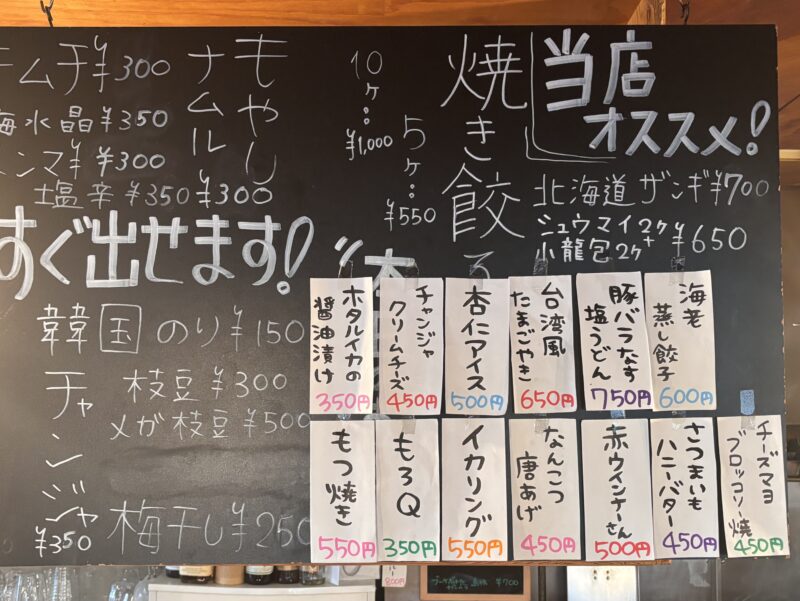 当店
オススメ!
北海道 ザンギ ¥700
シュウマイ2ケ+
小龍包2ケ
¥650
焼き餃子
5ヶ:
¥550
10ヶ:
¥1,000
もやし
ナムル
¥300
キムチ ¥300
海水晶 ¥350
¥300
塩辛 ¥350
すぐ出せます!
韓国のり ¥150
枝豆 ¥300
メガ枝豆 ¥500
チャンジャ
¥350
梅干し ¥250
海老
蒸し餃子
600円
豚バラなす
塩うどん
750円
台湾風
たまごやき
650円
杏仁アイス
500円
チャンジャ
クリームチーズ
450円
ホタルイカの
醤油漬け
350円
チーズマヨ
ブロッコリー焼
450円
さつまいも
ハニーバター
450円
赤ウインナーさん
500円
なんこつ
唐あげ
450円
イカリング
550円
もろQ
350円
もつ焼き
550円
¥700